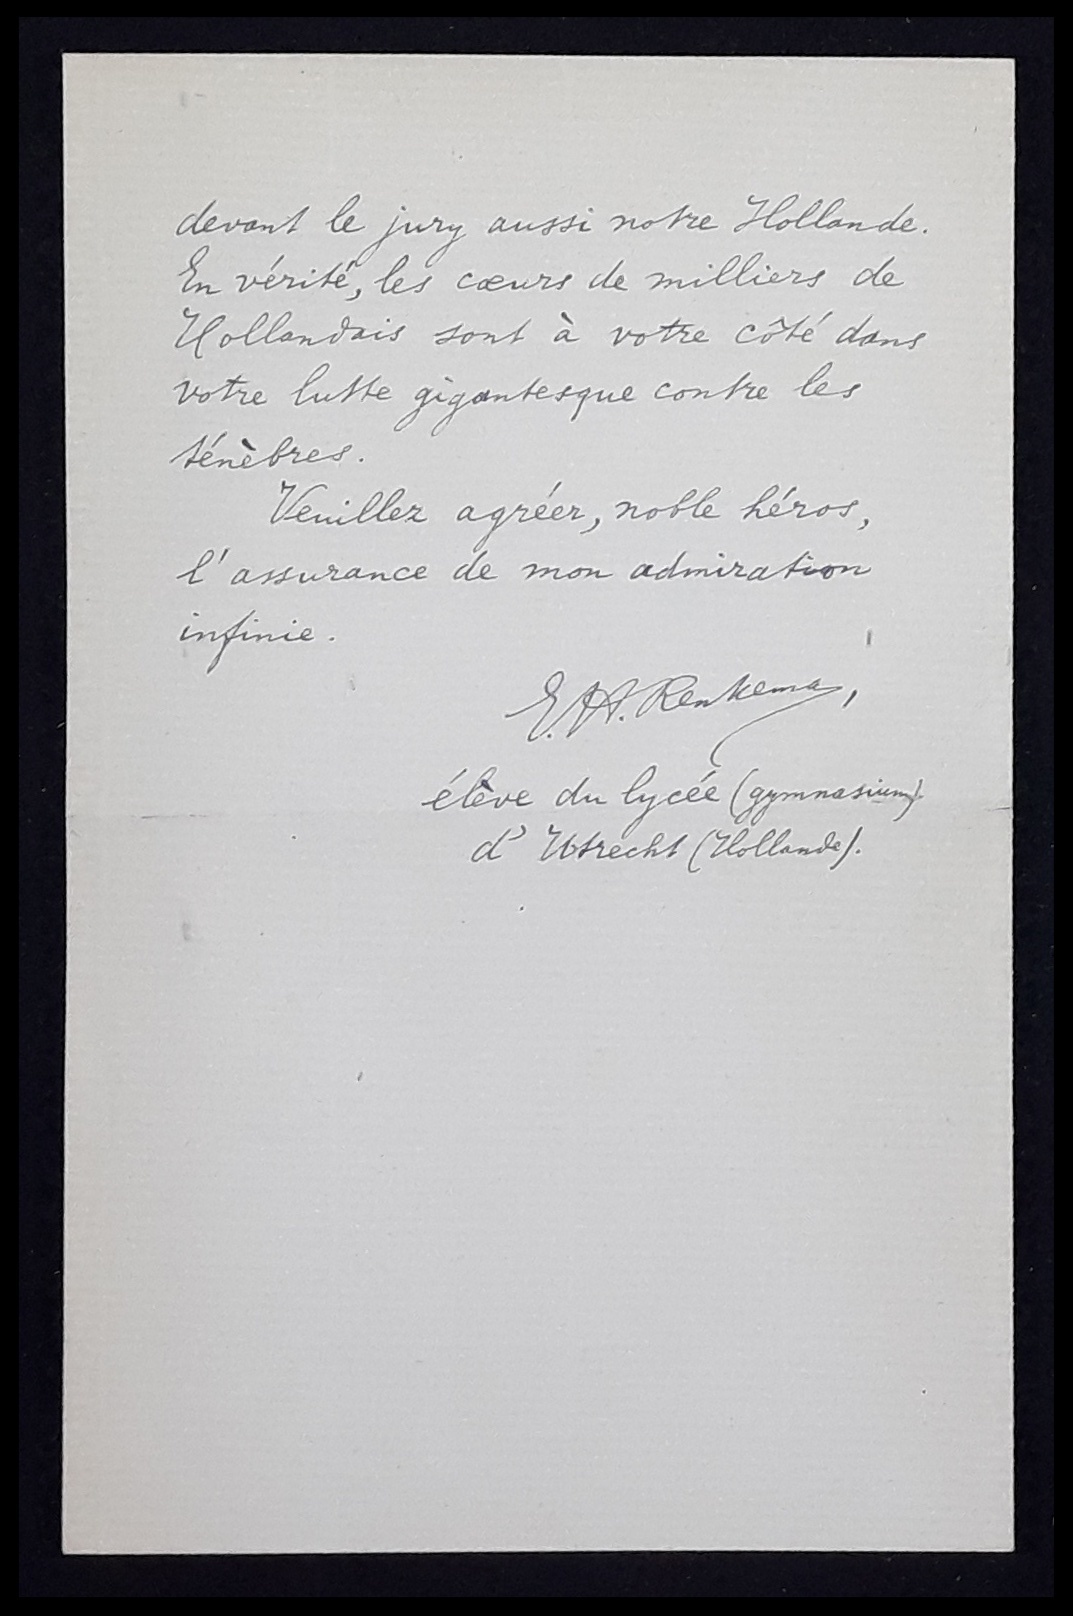 devant le jury aussi notre Hollande.
En vérité, les cœurs de milliers de
Hollandais sont à votre côté dans
votre lutte gigantesque contre les
ténèbres.
Veuillez agréer, noble héros,
l'assurance de mon admiration
infinie.
E. H. Renkema,
élève du lycée (gymnasium)
d'Utrecht (Hollande).